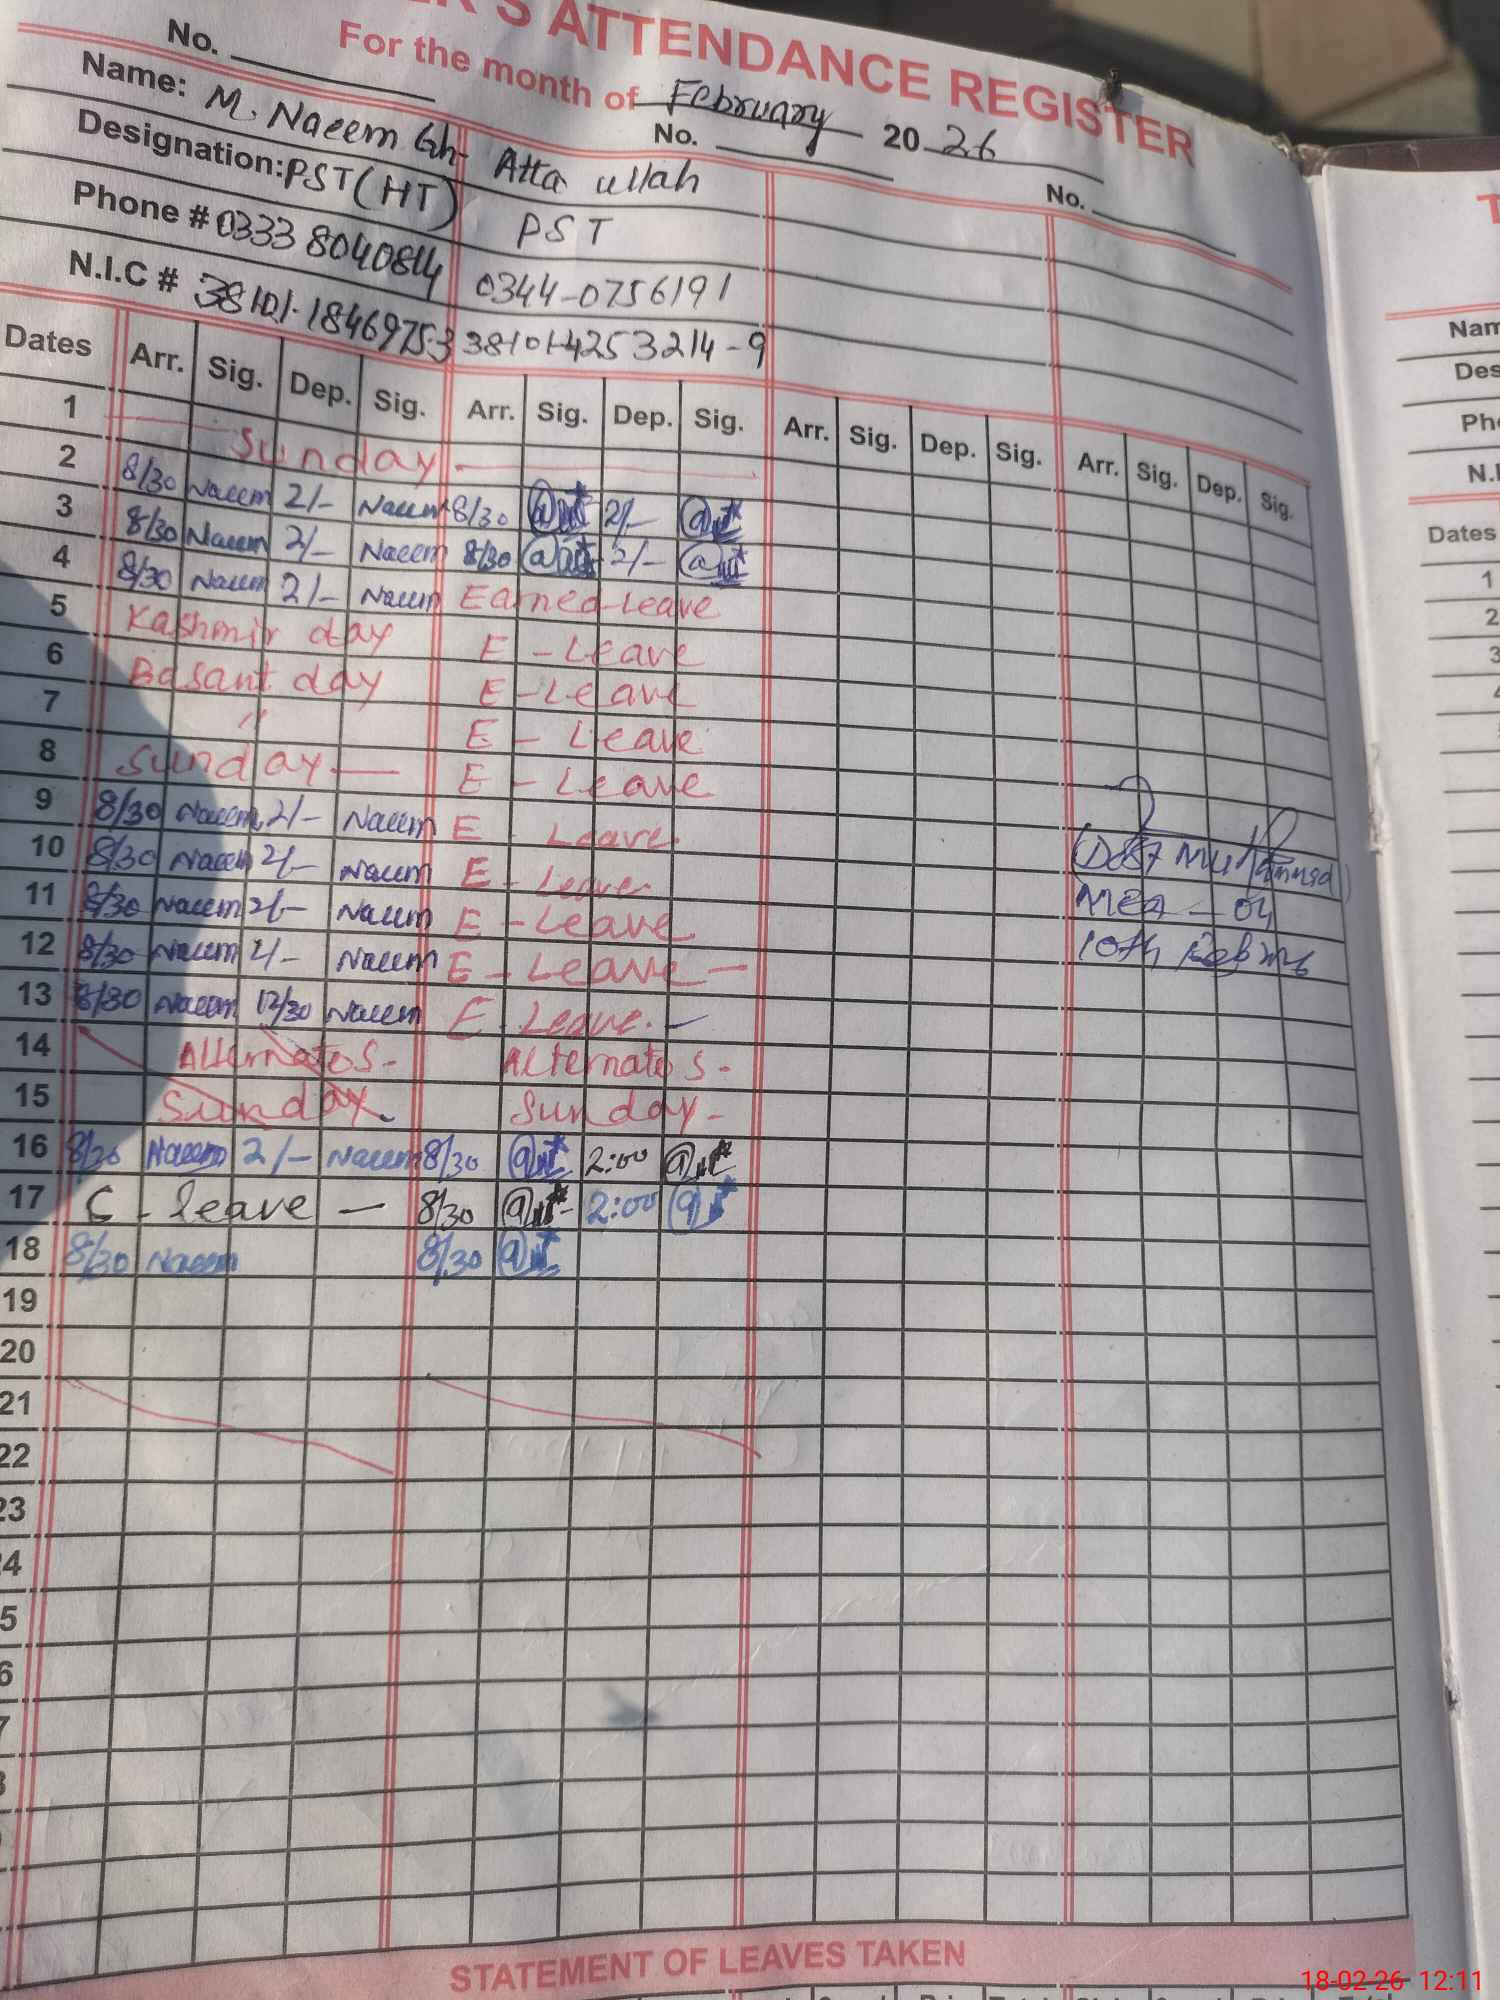 'S ATTENDANCE REGISTER
For the month of February 2026
No. No. No.
Name: M. Naeem Gh- Atta ullah
Designation: PST (HT) PST
Phone # 0333 8040814 0344-0756191
N.I.C # 38101-1846975-3 38101-4253214-9
Dates Arr. Sig. Dep. Sig. Arr. Sig. Dep. Sig. Arr. Sig. Dep. Sig. Arr. Sig. Dep. Sig.
1 Sunday
2 8/30 Naeem 2/- Naeem 8/30 2/-
3 8/30 Naeem 2/- Naeem 8/30 2/-
4 8/30 Naeem 2/- Naeem Earned-Leave
5 Kashmir day E - Leave
6 Basant day E - Leave
7 " E - Leave
8 Sunday — E - Leave
9 8/30 Naeem 2/- Naeem E - Leave
10 8/30 Naeem 2/- Naeem E - Leave
11 8/30 Naeem 2/- Naeem E - Leave
12 8/30 Naeem 2/- Naeem E - Leave —
13 8/30 Naeem 12/30 Naeem E - Leave. —
14 Alternate S- Alternate S-
15 Sunday. Sunday-
16 8/30 Naeem 2/- Naeem 8/30 2:00
17 C - leave — 8/30 2:00
18 8/30 Naeem 8/30
19
20
21
22
23
4
5
6
7
(Dost Muhammad)
MEA - 04
10th Feb
STATEMENT OF LEAVES TAKEN
T
Nam
Des
Pho
N.I
Dates
1
2
3
18-02-26 12:11